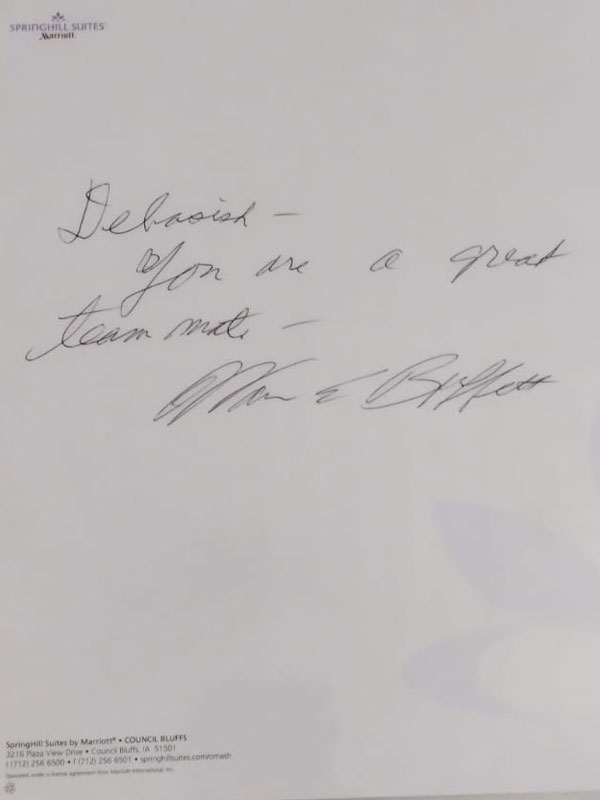 SPRINGHILL SUITES
Marriott
Debasish –
You are a great
team mate –
Warren E Buffett
SpringHill Suites by Marriott® • COUNCIL BLUFFS
3216 Plaza View Drive • Council Bluffs, IA 51501
t (712) 256 6500 • f (712) 256 6501 • springhillsuites.com/omash
Operated under a license agreement from Marriott International, Inc.